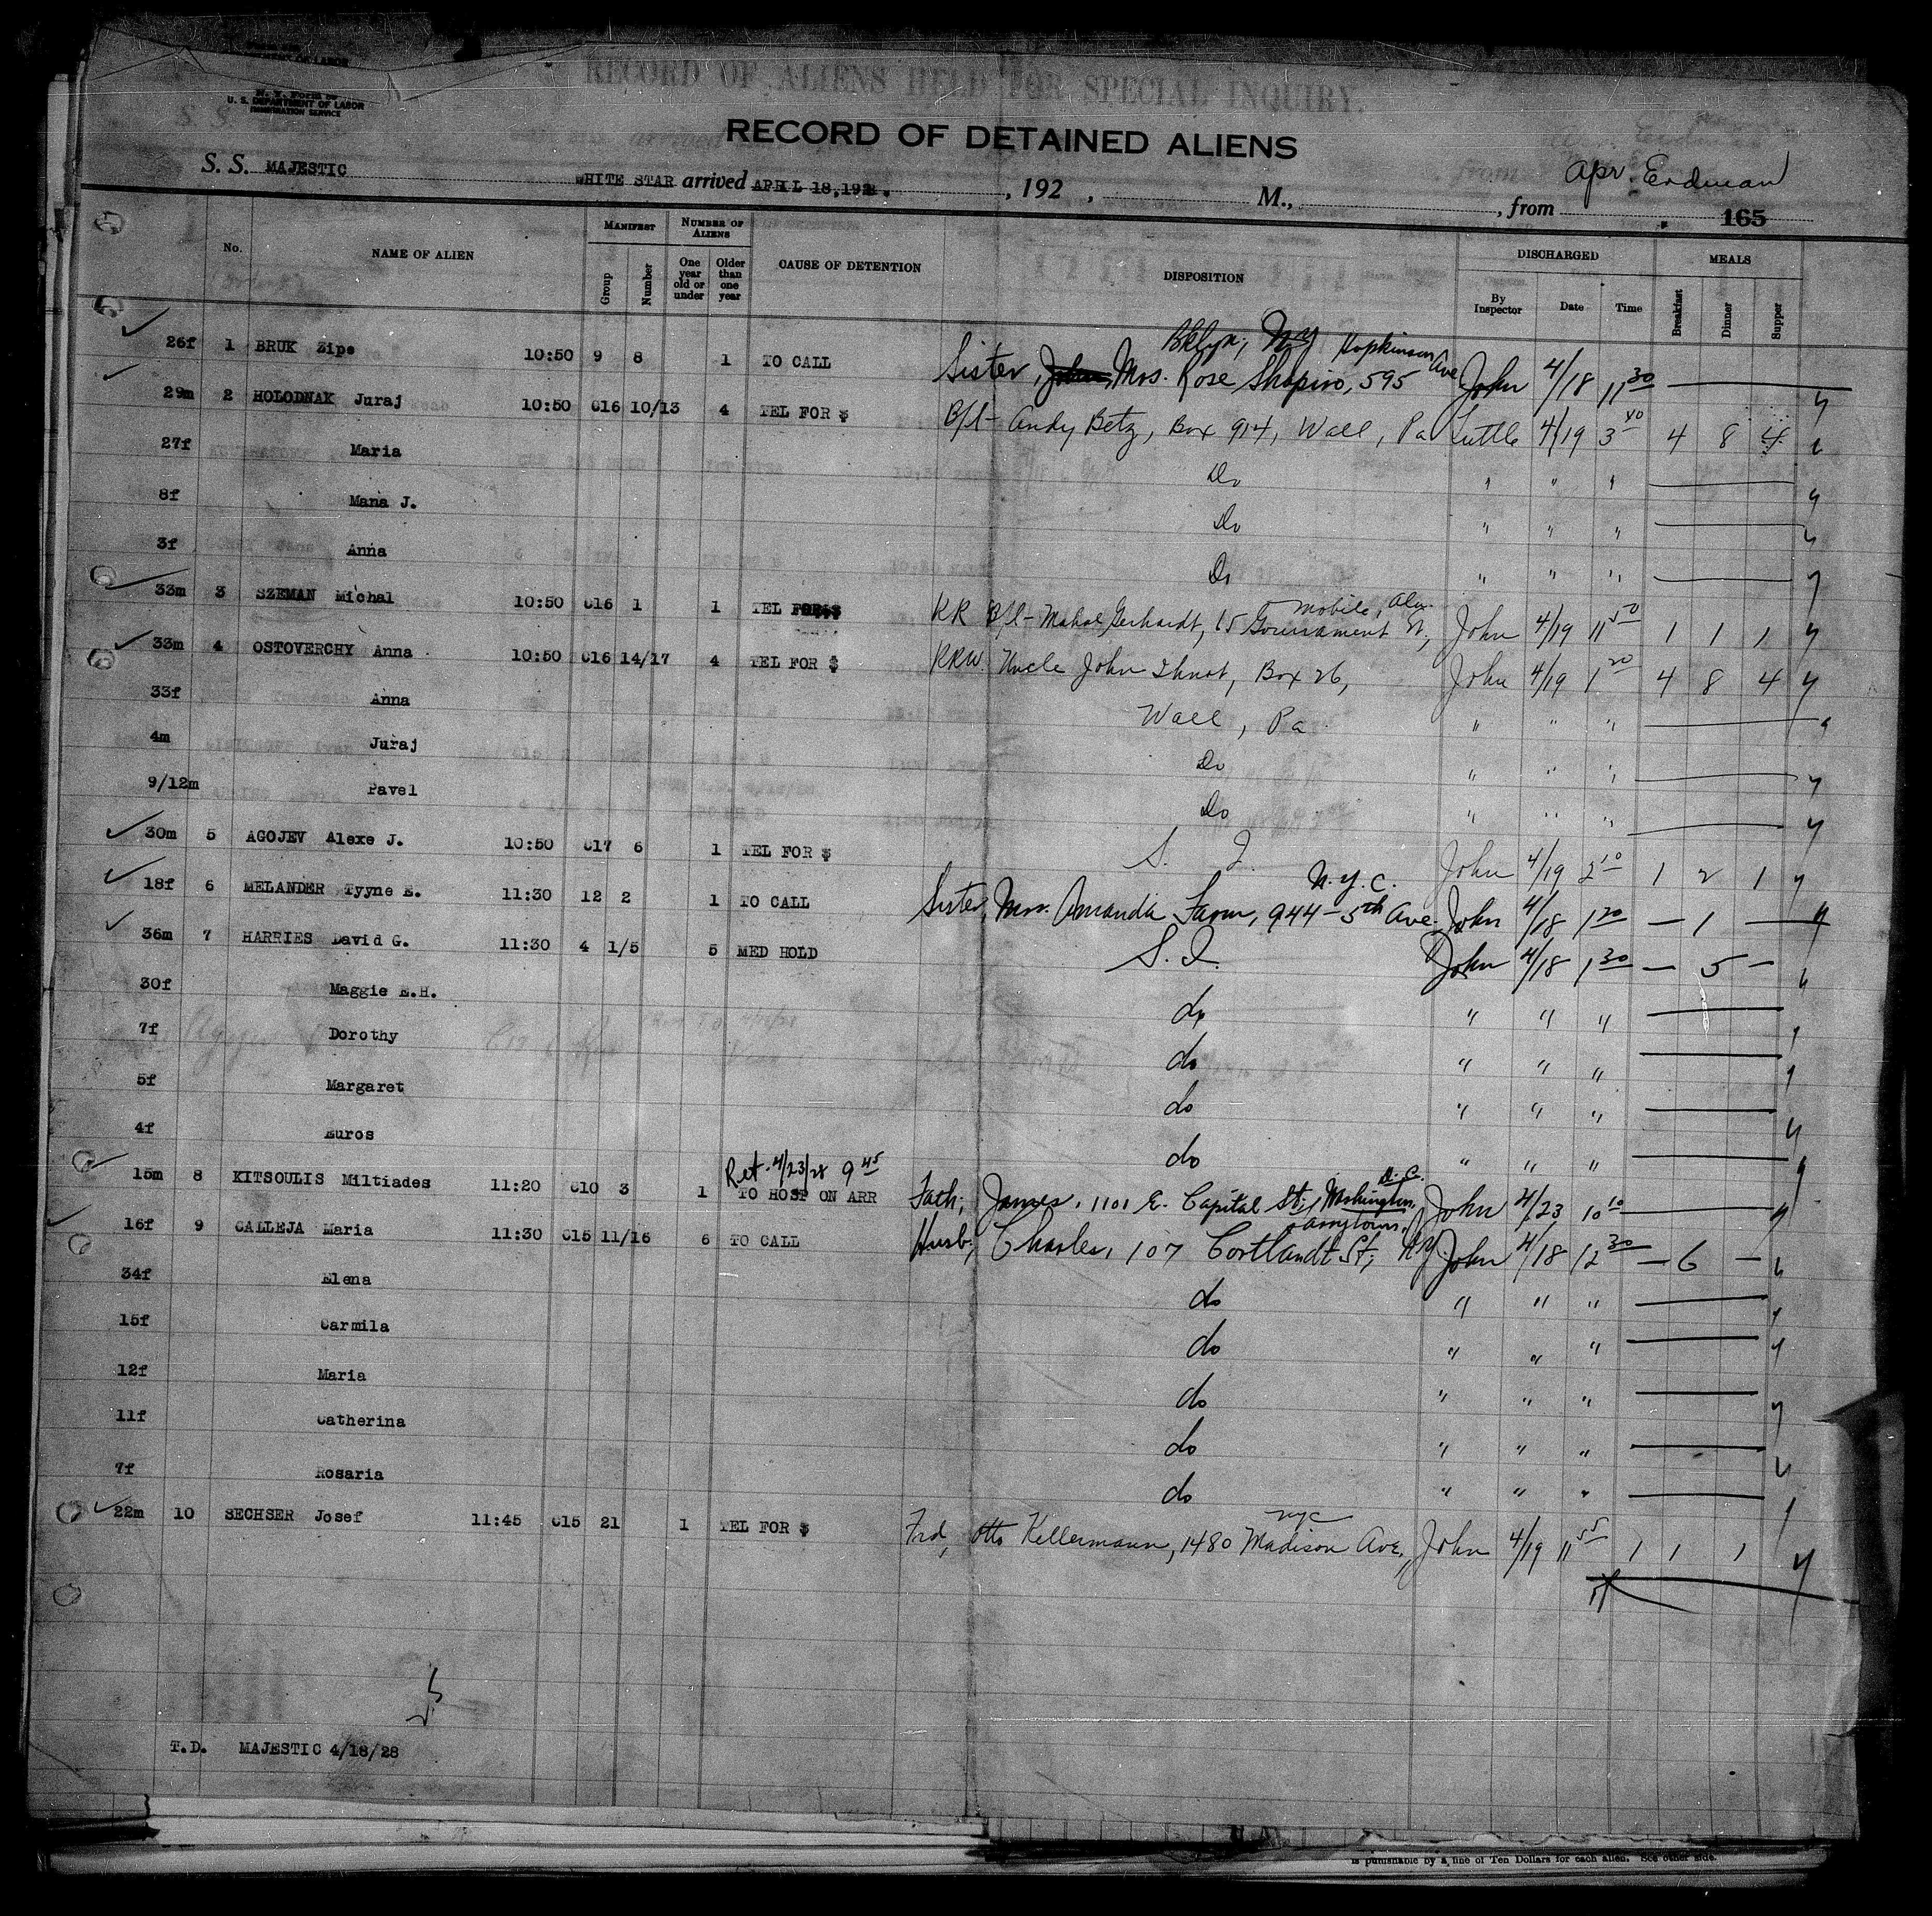 N. Y. Form
U. S. DEPARTMENT OF LABOR
IMMIGRATION SERVICE
RECORD OF ALIENS HELD FOR SPECIAL INQUIRY.
RECORD OF DETAINED ALIENS
S. S. MAJESTIC WHITE STAR arrived APRIL 18, 1928. , 192 , M., , from Apr. Erdman 165
No. NAME OF ALIEN MANIFEST Group Number NUMBER OF ALIENS One year old or under Older than one year CAUSE OF DETENTION DISPOSITION DISCHARGED By Inspector Date Time MEALS Breakfast Dinner Supper
Bklyn, NY Hopkinson Ave
26f 1 BRUK Zipe 10:50 9 8 1 TO CALL Sister, Mrs. Rose Shapiro, 595 John 4/18 11 30
29m 2 HOLODNAK Juraj 10:50 C16 10/13 4 TEL FOR $ B/l- Andy Betz, Box 914, Wall, Pa Tuttle 4/19 3 40 4 8 4
27f Maria Do " " "
8f Mana J. Do " " "
3f Anna Do " " "
Mobile, Ala.
33m 3 SZEMAN Michal 10:50 C16 1 1 TEL FOR $ RR B/l- Gerhardt, 15 Tournament St, John 4/19 11 50 1 1 1
33m 4 OSTOVERCHY Anna 10:50 C16 14/17 4 TEL FOR $ RRW. Uncle John Ihnat, Box 26, John 4/19 1 20 4 8 4
33f Anna Wall, Pa " " "
4m Juraj Do " " "
9/12m Pavel Do " " "
30m 5 AGOJEV Alexe J. 10:50 C17 6 1 TEL FOR $ S. I. John 4/19 2 10 1 2 1
N.Y.C.
18f 6 MELANDER Tyyne E. 11:30 12 2 1 TO CALL Sister, Mrs. Amanda Farm, 944-5th Ave. John 4/18 1 20 — 1 —
36m 7 HARRIES David G. 11:30 4 1/5 5 MED HOLD S.I. John 4/18 1 30 — 5 —
30f Maggie E.H. do " " "
7f Dorothy do " " "
5f Margaret do " " "
4f Euros do " " "
Ret. 4/23/28 9 45 D.C.
15m 8 KITSOULIS Miltiades 11:20 C10 3 1 TO HOSP ON ARR Fath, James, 1101 E. Capital St., Washington, John 4/23 10 10
Tarrytown,
16f 9 CALLEJA Maria 11:30 C15 11/16 6 TO CALL Husb, Charles, 107 Cortlandt St, NY. John 4/18 12 30 — 6 —
34f Elena do " " "
15f Carmila do " " "
12f Maria do " " "
11f Catherina do " " "
7f Rosaria do " " "
NYC
22m 10 SECHSER Josef 11:45 C15 21 1 TEL FOR $ Frd, Otto Kellermann, 1480 Madison Ave, John 4/19 11 55 1 1 1
T.D. MAJESTIC 4/18/28
is punishable by a fine of Ten Dollars for each alien. See other side.